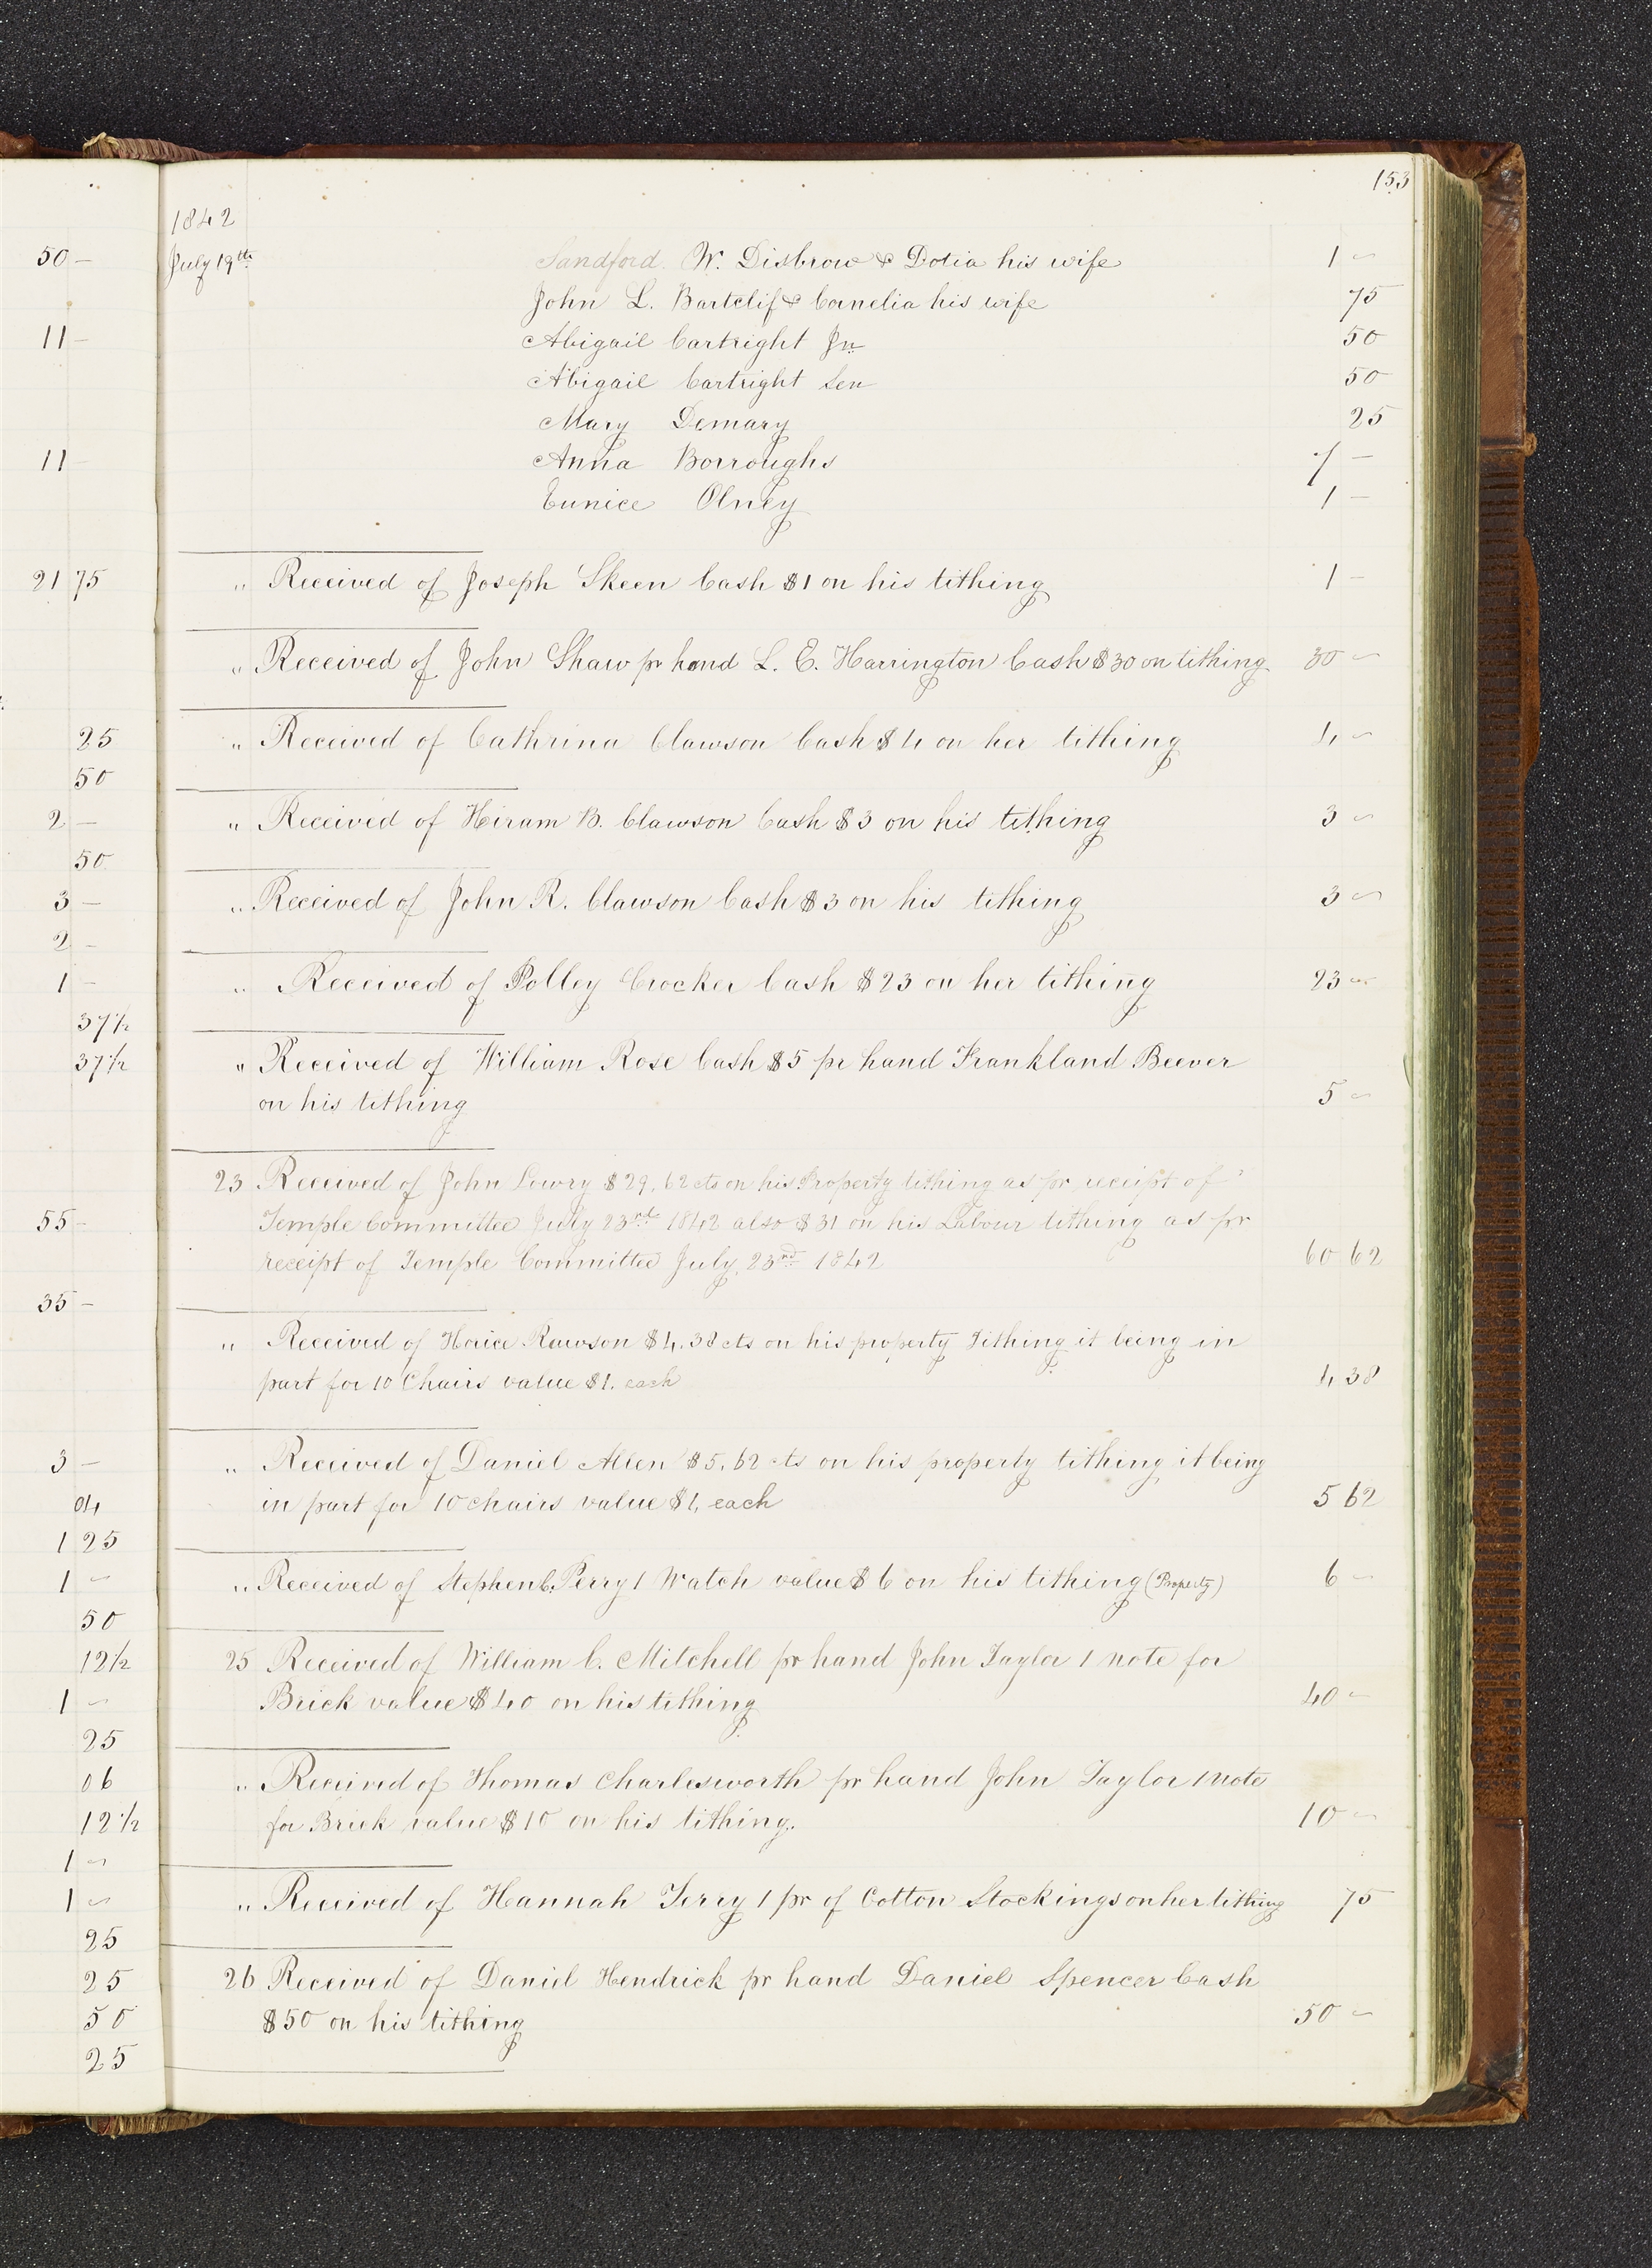 153
50 –
11 –
11
21 75
25
50
2 –
50
3 –
2 –
1 –
37 1/2
37 1/2
55 –
35 –
3 –
04
1 25
1 –
50
12 1/2
1 –
25
06
12 1/2
1 –
1 –
25
25
50
25
1842
July 19th Sandford W. Disbrow & Dotia his wife 1 –
John L. Bartclif & Cornelia his wife 75
Abigail Cartright Jn. 50
Abigail Cartright Sen 50
Mary Demary 25
Anna Borroughs 1 –
Eunice Olney 1 –
" Received of Joseph Skeen Cash $1 on his tithing 1 –
" Received of John Shaw pr hand L. E. Harrington Cash $30 on tithing. 30 –
" Received of Cathrina Clawson Cash $4 on her tithing 4 –
" Received of Hiram B. Clawson Cash $3 on his tithing 3 –
" Received of John R. Clawson Cash $3 on his tithing 3 –
" Received of Polley Crocker Cash $23 on her tithing 23 –
" Received of William Rose Cash $5 pr hand Frankland Beever
on his tithing 5 –
23 Received of John Lowry $29.62 cts on his Property tithing as pr receipt of
Temple Committee July 23rd 1842 also $31 on his Labour tithing as pr
receipt of Temple Committee July 23rd 1842 60 62
" Received of Horice Rawson $4.38 cts on his property Tithing it being in
part for 10 Chairs value $1. each 4 38
" Received of Daniel Allen $5.62 cts on his property tithing it being
in part for 10 chairs value $1, each 5 62
" Received of Stephen C. Perry 1 Watch value $6 on his tithing (Property) 6 –
25 Received of William C. Mitchell pr hand John Taylor 1 note for
Brick value $40 on his tithing 40 –
" Received of Thomas Charlesworth pr hand John Taylor 1 note
for Brick value $10 on his tithing. 10 –
" Received of Hannah Terry 1 pr of Cotton Stockings on her tithing 75
26 Received of Daniel Hendrick pr hand Daniel Spencer Cash
$50 on his tithing 50 –